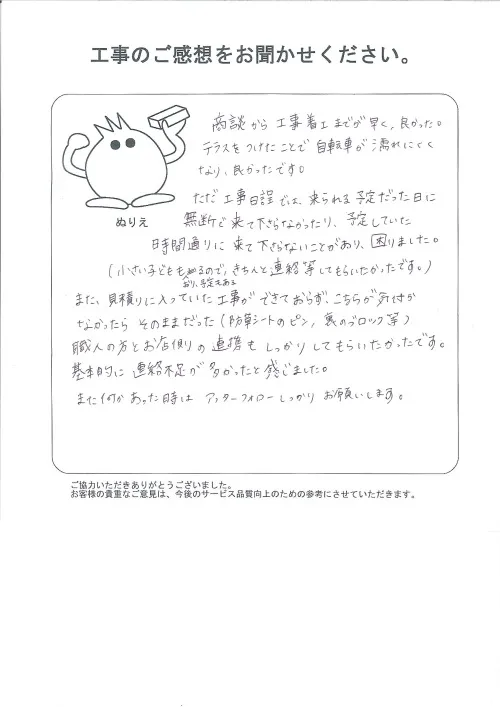 工事のご感想をお聞かせください。
商談から工事着工までが早く、良かった。
テラスをつけたことで自転車が濡れにくく
なり、良かったです。
ぬりえ
ただ工事日程では、来られる予定だった日に
無断で来て下さらなかったり、予定していた
時間通りに来て下さらないことがあり、困りました。
(小さい子どももおり、予定もあるので、きちんと連絡等してもらいたかったです。)
また、見積りに入っていた工事ができておらず、こちらが気付か
なかったらそのままだった(防草シートのピン、裏のブロック等)
職人の方とお店側の連携もしっかりしてもらいたかったです。
基本的に連絡不足が多かったと感じました。
また何かあった時はアフターフォローしっかりお願いします。
ご協力いただきありがとうございました。
お客様の貴重なご意見は、今後のサービス品質向上のための参考にさせていただきます。